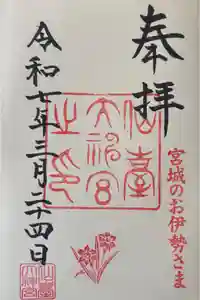 奉拝
宮城のお伊勢さま
仙臺大神宮之印
令和七年三月二十四日